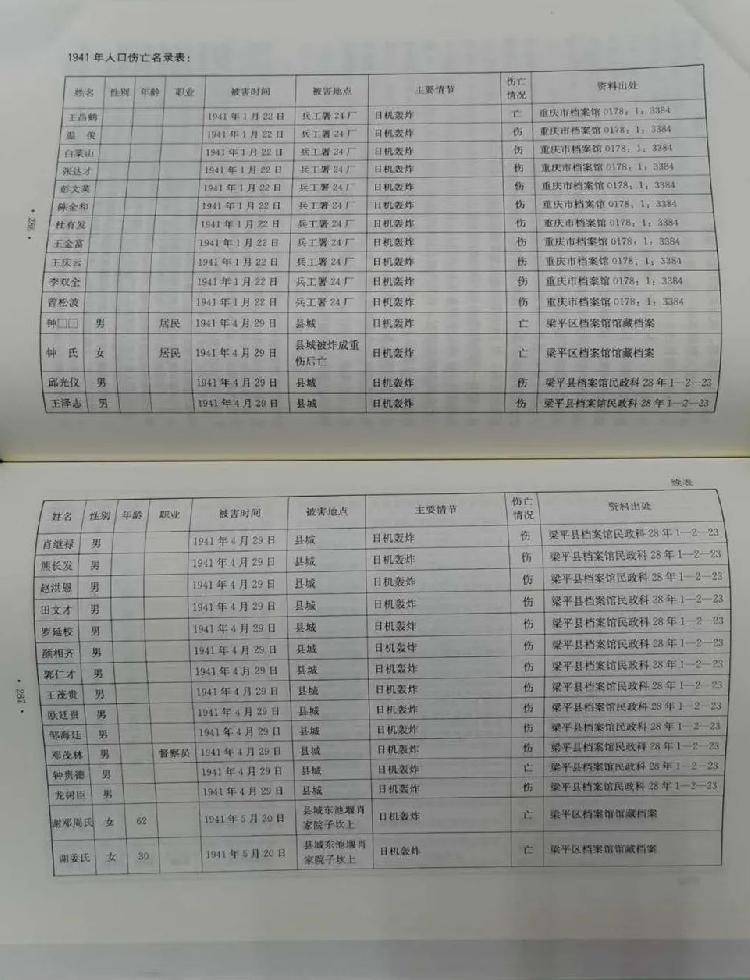 1941年人口伤亡名录表：
姓名 性别 年龄 职业 被害时间 被害地点 主要情节 伤亡情况 资料出处
王昌鹤 1941年1月22日 兵工署24厂 日机轰炸 亡 重庆市档案馆0178：1：3384
温俊 1941年1月22日 兵工署24厂 日机轰炸 伤 重庆市档案馆0178：1：3384
白荣山 1941年1月22日 兵工署24厂 日机轰炸 伤 重庆市档案馆0178：1：3384
张达才 1941年1月22日 兵工署24厂 日机轰炸 伤 重庆市档案馆0178：1：3384
彭文英 1941年1月22日 兵工署24厂 日机轰炸 伤 重庆市档案馆0178：1：3384
陈金和 1941年1月22日 兵工署24厂 日机轰炸 伤 重庆市档案馆0178：1：3384
杜有发 1941年1月22日 兵工署24厂 日机轰炸 伤 重庆市档案馆0178：1：3384
王金富 1941年1月22日 兵工署24厂 日机轰炸 伤 重庆市档案馆0178：1：3384
王庆云 1941年1月22日 兵工署24厂 日机轰炸 伤 重庆市档案馆0178：1：3384
李双全 1941年1月22日 兵工署24厂 日机轰炸 伤 重庆市档案馆0178：1：3384
曾松波 1941年1月22日 兵工署24厂 日机轰炸 伤 重庆市档案馆0178：1：3384
钟□□ 男 居民 1941年4月29日 县城 日机轰炸 亡 梁平区档案馆馆藏档案
钟氏 女 居民 1941年4月29日 县城被炸成重伤后亡 日机轰炸 亡 梁平区档案馆馆藏档案
邱光仪 男 1941年4月29日 县城 日机轰炸 伤 梁平县档案馆民政科28年1—2—23
王泽志 男 1941年4月29日 县城 日机轰炸 伤 梁平县档案馆民政科28年1—2—23
续表
姓名 性别 年龄 职业 被害时间 被害地点 主要情节 伤亡情况 资料出处
肖继禄 男 1941年4月29日 县城 日机轰炸 伤 梁平县档案馆民政科28年1—2—23
熊长发 男 1941年4月29日 县城 日机轰炸 伤 梁平县档案馆民政科28年1—2—23
赵洪恩 男 1941年4月29日 县城 日机轰炸 伤 梁平县档案馆民政科28年1—2—23
田文才 男 1941年4月29日 县城 日机轰炸 伤 梁平县档案馆民政科28年1—2—23
罗延校 男 1941年4月29日 县城 日机轰炸 伤 梁平县档案馆民政科28年1—2—23
颜相齐 男 1941年4月29日 县城 日机轰炸 伤 梁平县档案馆民政科28年1—2—23
郭仁才 男 1941年4月29日 县城 日机轰炸 伤 梁平县档案馆民政科28年1—2—23
王茂贵 男 1941年4月29日 县城 日机轰炸 伤 梁平县档案馆民政科28年1—2—23
男 1941年4月29日 县城 日机轰炸 伤 梁平县档案馆民政科28年1—2—23
邹海廷 男 1941年4月29日 县城 日机轰炸 伤 梁平县档案馆民政科28年1—2—23
邓茂林 男 督察员 1941年4月29日 县城 日机轰炸 伤 梁平县档案馆民政科28年1—2—23
钟贵德 男 1941年4月29日 县城 日机轰炸 亡 梁平县档案馆民政科28年1—2—23
男 1941年4月29日 县城 日机轰炸 伤 梁平县档案馆民政科28年1—2—23
谢邓周氏 女 62 1941年5月20日 县城东池堰肖家院子坎上 日机轰炸 亡 梁平区档案馆馆藏档案
谢姜氏 女 30 1941年5月20日 县城东池堰肖家院子坎上 日机轰炸 亡 梁平区档案馆馆藏档案